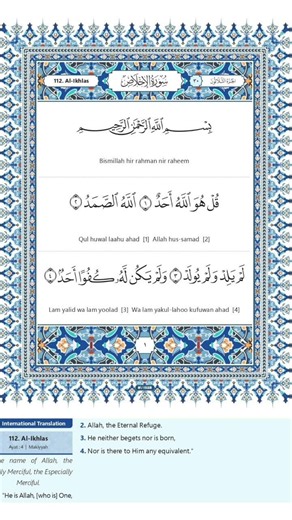 112. Al-Ikhlas
سورة الإخلاص
٣٠
بِسْمِ ٱللَّهِ ٱلرَّحْمَٰنِ ٱلرَّحِيمِ
Bismillah hir rahman nir raheem
قُلْ هُوَ ٱللَّهُ أَحَدٌ ١ ٱللَّهُ ٱلصَّمَدُ ٢
Qul huwal laahu ahad [1] Allah hus-samad [2]
لَمْ يَلِدْ وَلَمْ يُولَدْ ٣ وَلَمْ يَكُن لَّهُۥ كُفُوًا أَحَدٌۢ ٤
Lam yalid wa lam yoolad [3] Wa lam yakul-lahoo kufuwan ahad [4]
١
International Translation
112. Al-Ikhlas
Ayat: 4 | Makkiyah
name of Allah, the
Merciful, the Especially
Merciful.
"He is Allah, [who is] One,
2. Allah, the Eternal Refuge.
3. He neither begets nor is born,
4. Nor is there to Him any equivalent."